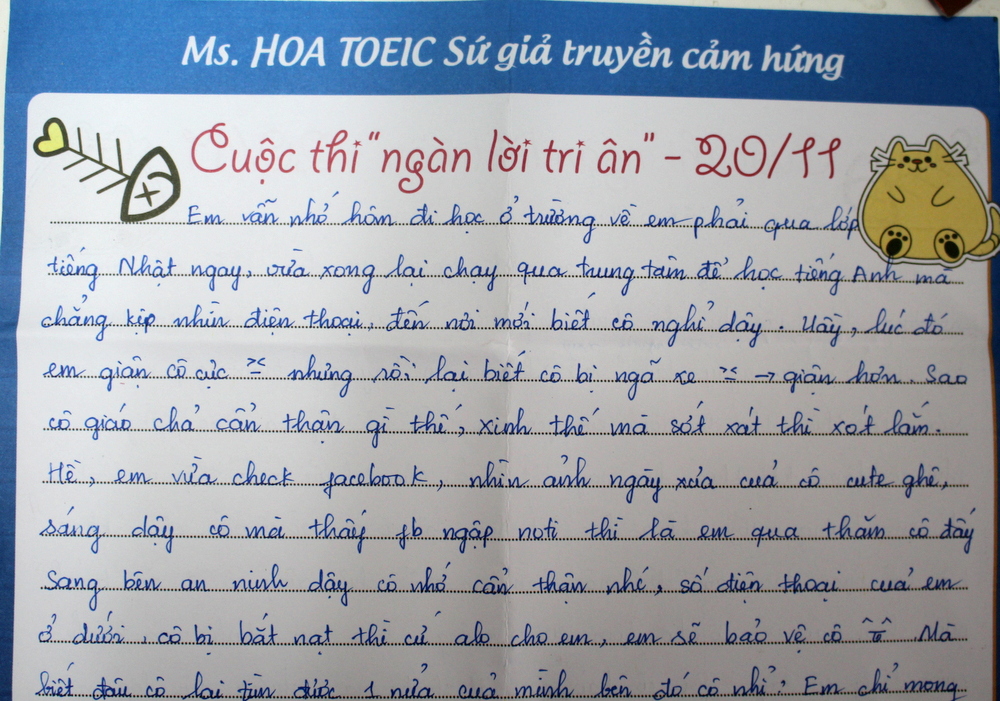 Ms. HOA TOEIC Sứ giả truyền cảm hứng
Cuộc thi "ngàn lời tri ân" - 20/11
Em vẫn nhớ hôm đi học ở trường về em phải qua lớp
tiếng Nhật ngay, vừa xong lại chạy qua trung tâm để học tiếng Anh mà
chẳng kịp nhìn điện thoại, đến nơi mới biết cô nghỉ dạy. Uầy, lúc đó
em giận cô cực >< nhưng rồi lại biết cô bị ngã xe >< → giận hơn. Sao
cô giáo chả cẩn thận gì thế, xinh thế mà sớt xát thì xót lắm.
Hề, em vừa check facebook, nhìn ảnh ngày xưa cuả cô cute ghê,
sáng dậy cô mà thấy fb ngập noti thì là em qua thăm cô đấy
Sang bên an ninh dậy cô nhớ cẩn thận nhé, số điện thoại cuả em
ở dưới, cô bị bắt nạt thì cứ alo cho em, em sẽ bảo vệ cô Mà
biết đâu cô lại tìm được 1 nửa cuả mình bên đó cô nhỉ? Em chỉ mong